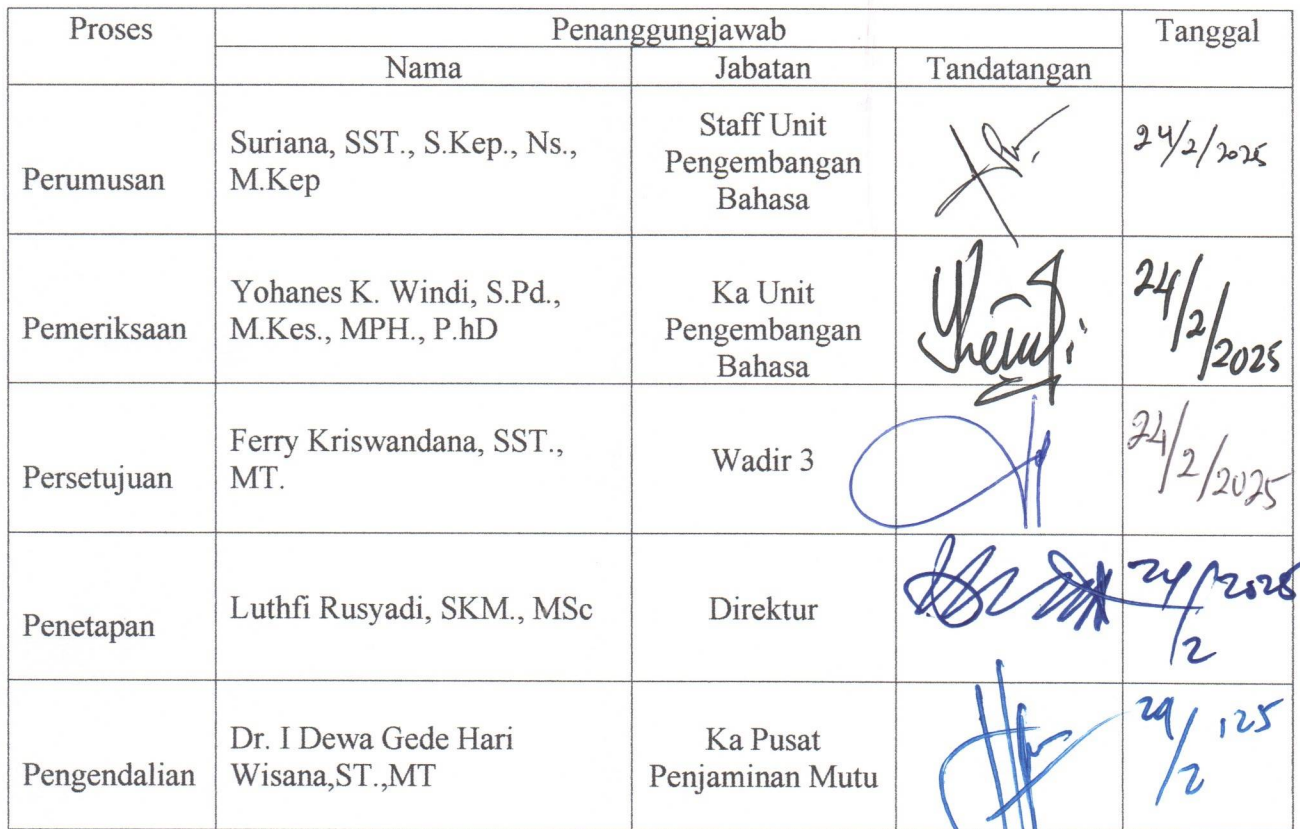 Proses
Penanggungjawab
Tanggal
Nama
Jabatan
Tandatangan
Perumusan
Suriana, SST., S.Kep., Ns.,
M.Kep
Staff Unit
Pengembangan
Bahasa
24/2/2025
Pemeriksaan
Yohanes K. Windi, S.Pd.,
M.Kes., MPH., P.hD
Ka Unit
Pengembangan
Bahasa
24/2/2025
Persetujuan
Ferry Kriswandana, SST.,
MT.
Wadir 3
24/2/2025
Penetapan
Luthfi Rusyadi, SKM., MSc
Direktur
24/2 2025
Pengendalian
Dr. I Dewa Gede Hari
Wisana,ST.,MT
Ka Pusat
Penjaminan Mutu